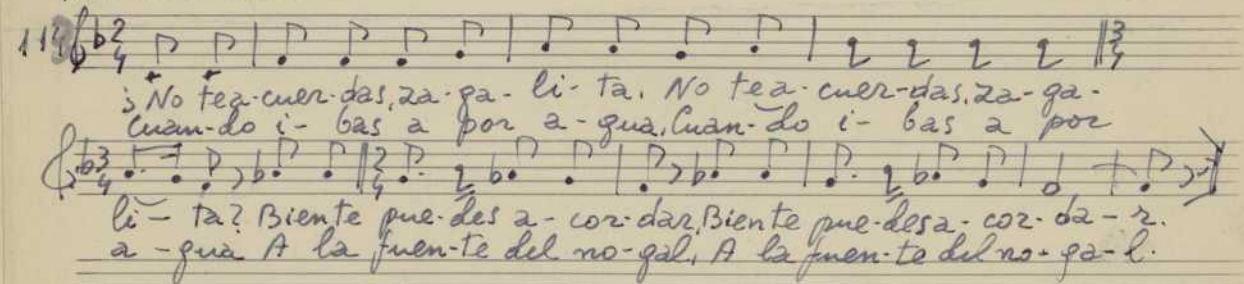 114 2/4 3/4
¿No tea-cuer-das, za-ga-li-ta. No tea-cuer-das, za-ga-
Cuan-do i-bas a por a-gua, Cuan-do i-bas a por
3/4 2/4
li-ta? Biente pue-des a-cor-dar, Biente pue-des a-cor-da-r.
a-gua A la fuen-te del no-gal, A la fuen-te del no-ga-l.